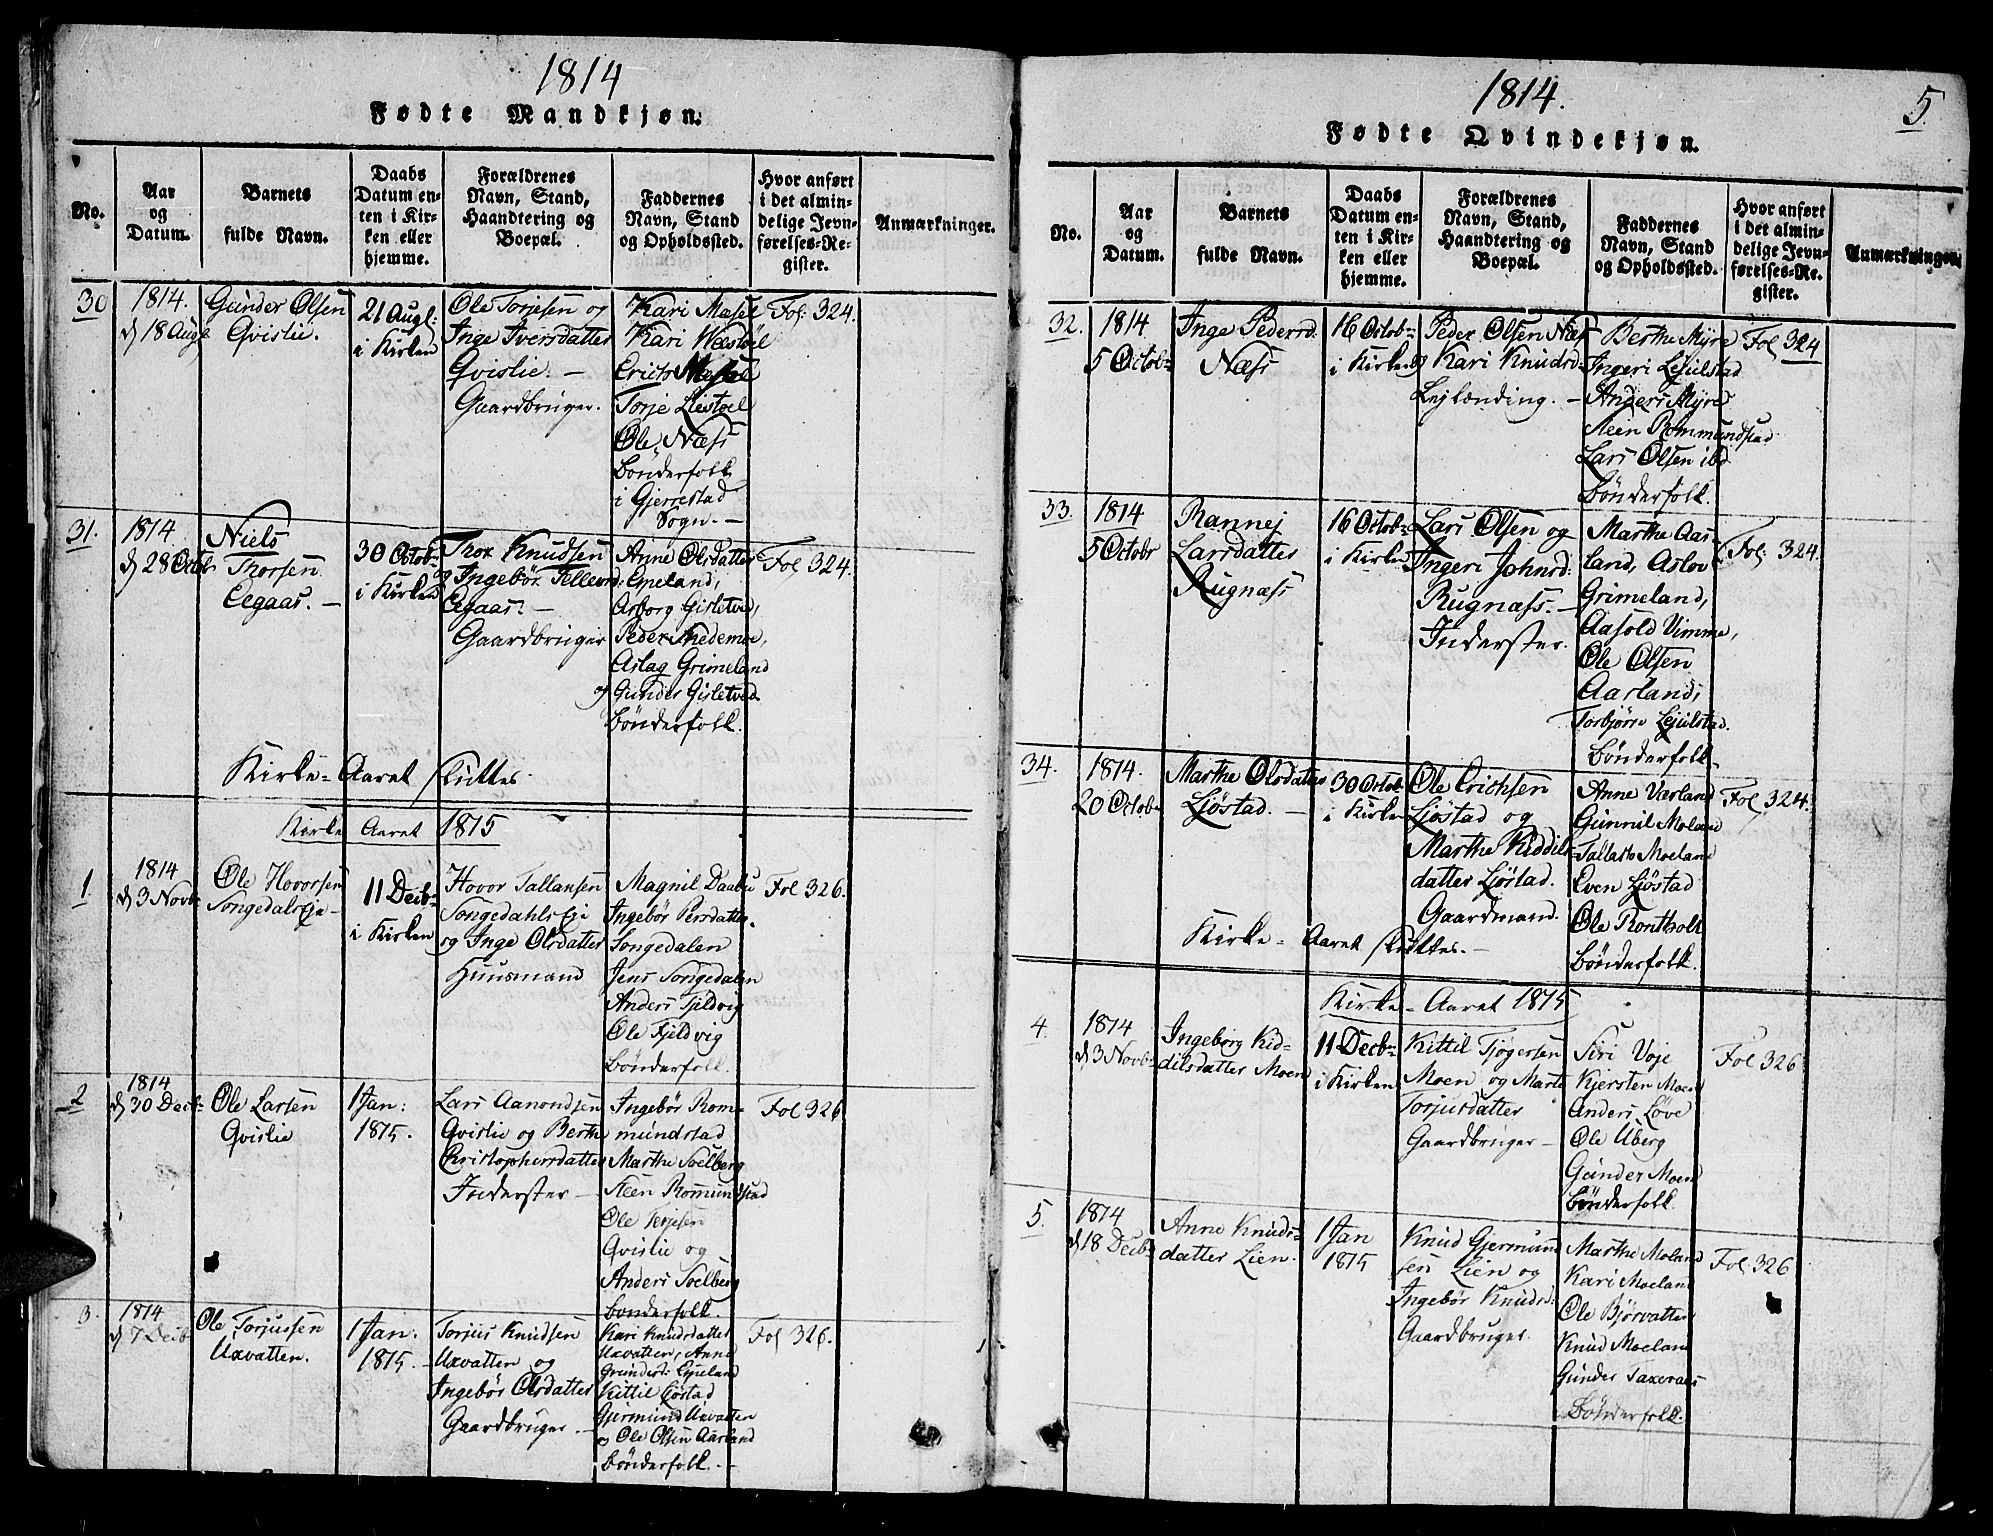 1814
Fødte Mandkjøn.
No.
Aar
og
Datum.
Barnets
fulde Navn.
Daabs
Datum en-
ten i Kir-
ken eller
hjemme.
Forældrenes
Navn, Stand,
Haandtering og
Boepæl.
Faddernes
Navn, Stand
og Opholdssted.
Hvor anført
i det almin-
delige Jevn-
førelses-Re-
gister.
Anmærkninger.
30
1814.
d 18 Aug
Gunder Olsen
Qvislie.
21 Augl:
i Kirken
Ole Torjesen og
Inge Iversdatter
Qvislie. –
Gaardbruger.
Kari Masel
Kari Wæstøl
Erich Masel
Torje Liestøel
Ole Næss
Bønderfolk
i Gjerrestad
Sogn. –
Fol: 324.
31.
1814.
d 28 Octob
Niels
Thorsen
Eegaas. –
30 Octob-
i Kirken
Thor Knudsen
og Ingebør Tellevd:
Eegaas. –
Gaardbruger
Anne Olsdatter
Epeland,
Asborg Gisletved,
Peder Smedemoe,
Aslag Grimeland
og Gunder Gisletved
Bønderfolk.
Fol 324.
Kirke-Aaret sluttes
Kirke Aaret 1815
1
1814
d 3 Novb-
Ole Hovorsen
Songedalseje
11 Decb-
i Kirken
Hovor Tallansen
Songedahlseje
og Inge Olsdatter
Huusmand
Magnil Daabu
Ingebør Persdatter
Songedalen
Jens Songedalen
Anders Fjeldvig
Ole Fjeldvig
Bønderfolk.
Fol 326.
2
1814
d 30 Decb-
Ole Larsen
Qvislie
1 Jan:
1815.
Lars Aanondsen
Qvislie og Berthe
Christophersdatter
Inderster –
Ingebør Rom-
mundstad
Marthe Soelberg
Steen Romundstad
Ole Terjesen
Qvislie og
Anders Soelberg
bønderfolk.
Fol 326.
3.
1814
d 7 Decb
Ole Torjussen
Uxvatten.
1 Jan.
1815.
Torjus Knudsen
Uxvatten og
Ingebør Olsdatter
Gaardbruger –
Kari Knudsdatter
Uxvatten, Anne
Gundersd: Epeland
Kittil Ljøstad
Gjermund Uxvatten
og Ole Olsen Aarland
bønderfolk. –
Fol 326.
1814.
5.
Fødte Qvindekjøn.
No.
Aar
og
Datum.
Barnets
fulde Navn.
Daabs
Datum en-
ten i Kir-
ken eller
hjemme.
Forældrenes
Navn, Stand,
Haandtering og
Boepæl.
Faddernes
Navn, Stand
og Opholdssted.
Hvor anført
i det almin-
delige Jevn-
førelses-Re-
gister.
Anmærkninger
32.
1814
5 Octob-
Inge Pedersd.
Næss
16 Octob-
i Kirken
Peder Olsen Næs
og Kari Knudsd-
Lejlænding. –
Berthe Myre
Ingeri Lejulstad
Anders Myre
Stein Rommundstad
Lars Olsen ibd
Bønderfolk.
Fol 324
33.
1814
5 Octobr
Rannej
Larsdatter
Rugnæss
16 Octob-
i Kirken
Lars Olsen og
Ingeri Johnsd:
Rugnæss. –
Inderster.
Marthe Aas-
land, Aslov
Grimeland,
Aasold Vimme,
Ole Olsen
Aarland,
Torbjørn Lejulstad.
bønderfolk –
Fol: 324.
34.
1814.
20 Octob-
Marthe Olsdatter
Ljøstad. –
30 Octob-
i Kirken
Ole Erichsen
Ljøstad og
Marthe Kiddils-
datter Ljøstad.
Gaardmand.
Anne Værland
Gunnil Moland
Tallak Moeland
Even Ljøstad
Ole Rontholt
bønderfolk.
Fol 324.
Kirke-Aaret sluttes. –
Kirke-Aaret 1815
4.
1814
d 3 Novb-
Ingeborg Kid-
dilsdatter Moen
11 Decb-
i Kirken
Kittil Tjøgersen
Moen og Marte
Torjusdatter
Gaardbruger –
Siri Voje
Kjersten Moen
Anders Løve
Ole Uberg
Gunder Moen
bønderfolk.
Fol 326
5.
1814
d 18 Decb-
Anne Knuds-
datter Lien.
1 Jan
1815
Knud Gjermund
sen Lien og
Ingebør Knudsd:
Gaardbruger.
Marthe Moland
Kari Moeland
Ole Bjørvatten
Knud Moeland
Gunder Taxeraas
Bønderfolk.
Fol: 326